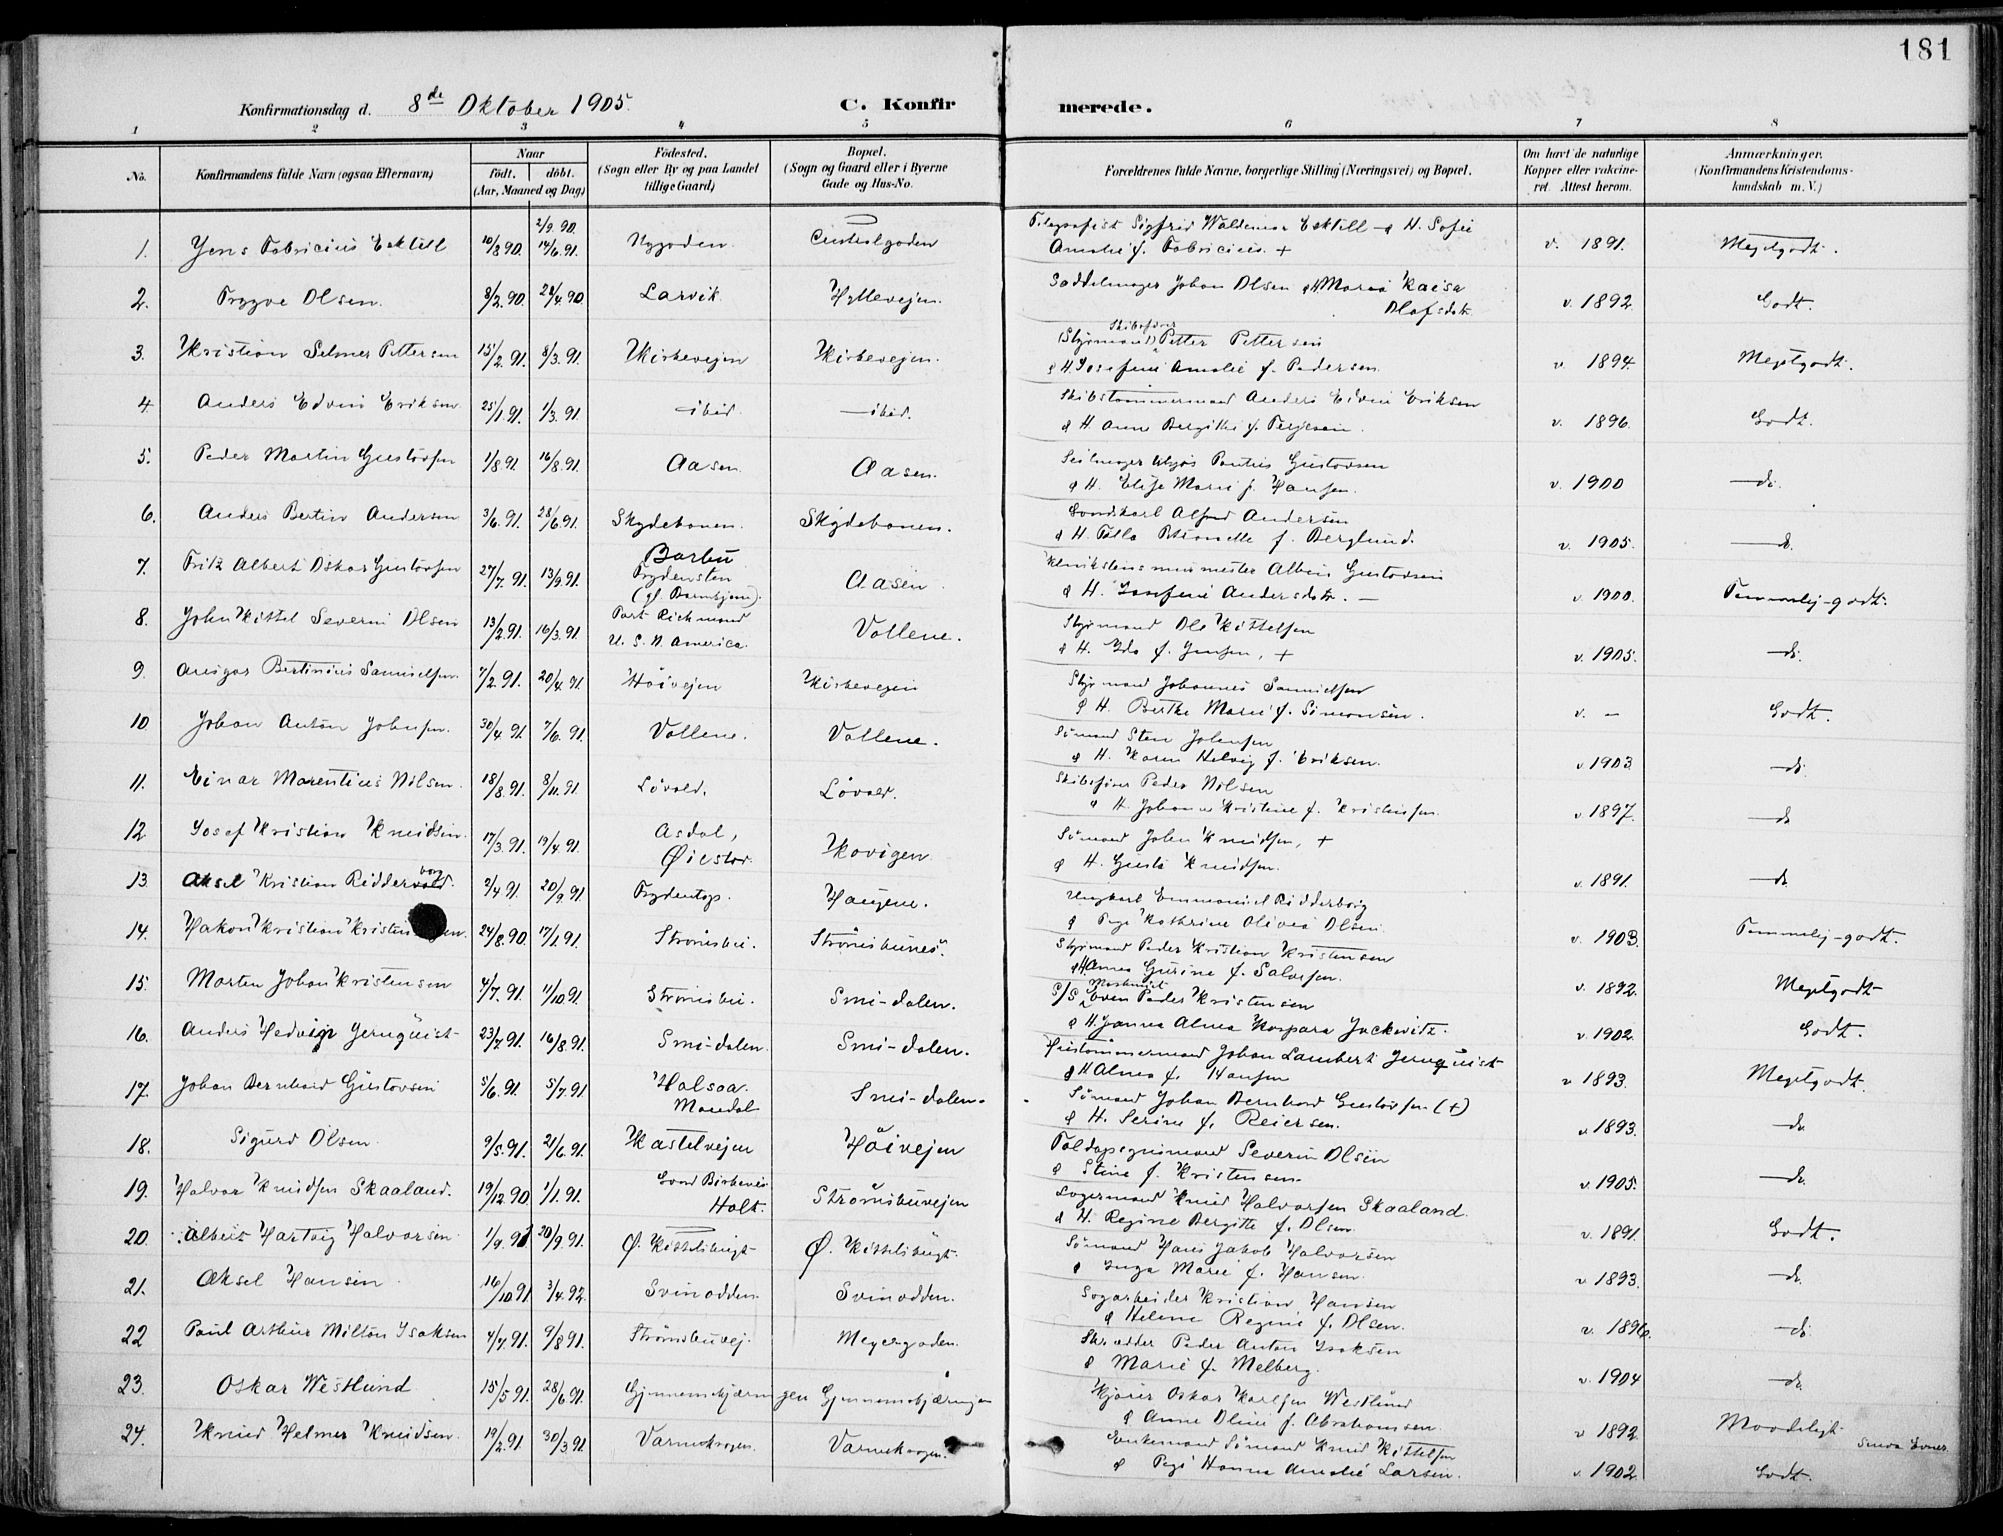 181
Konfirmationsdag d. 8de Oktober 1905.
C. Konfirmerede.
1 2 3 4 5 6 7 8
No. Konfirmandens fulde Navn (ogsaa Efternavn) Naar født. døbt. (Aar, Maaned og Dag) Fødested. (Sogn eller By og paa Landet tillige Gaard) Bopæl. (Sogn og Gaard eller i Byerne Gade og Hus-No. Forældrenes fulde Navne, borgerlige Stilling (Næringsvei) og Bopæl. Om havt de naturlige Kopper eller vakcineret. Attest herom. Anmærkninger. (Konfirmandens Kristendomskundskab m. V.)
1. Jens Fabricius Esktill 10/8 90. 2/9 90. 14/6 91. Nygaden. Centralgaden
Telegrafist Sigfrid Waldemar Esktill & H. Sofie
Amalie f. Fabricius. + v. 1891. Megetgodt.
2. Trygve Olsen. 8/2 90. 24/4 90 Larvik. Hyllevejen.
Saddelmager Johan Olsen & H Maria Kaisa
Olafsdtr. v. 1892. Godt.
3. Kristian Selmer Pettersen 15/2 91. 8/3 91. Kirkevejen Kirkevejen.
Skibsfører
(Styrmand) Petter Pettersen
& H. Josefine Amalie f. Pedersen. v. 1894. Megetgodt.
4. Anders Edvin Eriksen 25/1 91. 1/3 91. — ibid. — ibid.
Skibstømmermand Anders Edvin Eriksen
& H. Anne Bergitte f. Terjesen. v. 1896. Godt.
5. Peder Martin Gustavsen 1/8 91. 16/8 91. Aasen. Aasen.
Seilmager Pontus Gustavsen
& H. Elise Marie f. Hansen. v. 1900 — do.
6. Anders Bertin Andersen 3/6 91. 28/6 91. Skydebanen. Skydebanen.
Alfred Andersen
& H. Petronelle f. Berglund. v. 1905. — do.
7. Fritz Albert Oskar Gustavsen 27/7 91. 13/9 91. Barbu
Frydensten Aasen
Albin Gustavsen
& H. Josefine Andersdtr. — v. 1900. Temmelig-godt.
8. John Kittel Severin Olsen 13/2 91. 16/3 91. Port Richmond
U. S. N. America. Vollene.
Styrmand Ole Kittelsen
& H. Ida f. Jensen, + v. 1905. — do.
9. Ansgar Bertinius Samuelsen. 7/2 91. 20/4 91. Høivejen Kirkevejen
Styrmand Johannes Samuelsen
& H. Berthe Marie f. Simonsen. v. — Godt.
10 Johan Anton Johnsen. 30/4 91. 7/6 91. Vollene. Vollene.
Sømand Sten Johnsen
& H. Karen Helvig f. Eriksen. v. 1903. — do.
11. Einar Marentius Nilsen. 18/8 91. 8/11 91. Løvold. Løvold.
Skibsfører Peder Nilsen
& H. Johanne Kristine f. Kristensen. v. 1897. — do.
12 Josef Kristian Knudsen. 17/3 91. 19/4 91. Asdal,
Øiestad. Kovigen
Sømand John Knudsen, +
& H. Gusta Knudsen. v. 1891. — do.
13 Aksel Kristian Ridderborg. 2/4 91. 20/9 91. Frydentop. Haugene.
Ungkarl Emmanuel Ridderborg
& Pige Kathrine Olivea Olsen. v. 1903. Temmelig-godt.
14. Hakon Kristian Kristensen. 24/8 90. 17/1 91. Strømsbu. Strømsbunes.
Styrmand Peder Kristian Kristensen
& H. Anna Gurine f. Salvesen. v. 1892. Megetgodt
15. Morten Johan Kristensen 4/7 91. 11/10 91. Strømsbu. Smi-dalen.
Maskinist
S/S Even Peder Kristensen
& H. Janna Alma Kaspara Jackwitz. v. 1902. Godt.
16. Anders Hedvin Jernquist 23/7 91. 16/8 91. Smi-dalen. Smi-dalen.
Hustømmermand Johan Lambert Jernquist
& H Alma f. Hansen v 1893. Megetgodt
17. Johan Bernhard Gustavsen 5/6 91. 5/7 91. Halsaa.
Mandal Smi-dalen.
Sømand Johan Bernhard Gustavsen (+)
& H. Serine f. Reiersen. v. 1893. — do
18. Sigurd Olsen. 9/5 91. 21/6 91. Kastelvejen Høivejen
Toldopsynsmand Severin Olsen
& Stine f. Kristensen. v. 1905. — do.
19. Halvor Knudsen Skaaland. 19/12 90. 1/1 91.
Holt. Strømsbuvejen
Lagermand Knud Halvorsen Skaaland.
& H. Regine Bergitte f. Olsen. v. 1891. Godt.
20. Albert Hartvig Halvorsen 1/9 91 20/9 91. Ø. Kittelsbugt Ø. Kittelsbugt.
Sømand Hans Jakob Halvorsen
& Inga Marie f. Hansen. v 1893. — do.
21. Aksel Hansen. 16/10 91 3/4 92. Svinodden. Svinodden.
Sagarbeider Kristian Hansen
& Helene Regine f. Olsen. v. 1896. — do.
22 Paul Arthur Milton Isaksen 4/7 91. 9/8 91. Strømsbuvej. Meyergaden.
Skrædder Peder Anton Isaksen
& Marie f. Melberg. v. 1904 — do.
23. Oskar Westlund 15/5 91. 28/6 91. Gjennemskjæringen Gjennemskjæringen
Kjører Oskar Karlsen Westlund
& Anne Oline f. Abrahamsen. v 1892. Maadeligt
24. Knud Helmer Knudsen. 19/2 91. 30/3 91 Varnekrogen. Varnekrogen.
Enkemand Sømand Knud Kittelsen
& Pige Hanna Amalie Larsen. v. 1902. Godt.